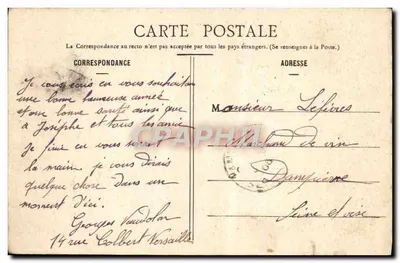 CARTE POSTALE
La Correspondance au recto n'est pas acceptée par tous les pays étrangers. (Se renseigner à la Poste.)
CORRESPONDANCE
ADRESSE
Je vous écris en vous souhaitant
une bonne heureuse année
et une bonne santé ainsi que
à Josephe et tous les amis
Je finis en vous serrant
la main, je vous dirais
quelque chose dans un
moment d'ici.
Georges
14 rue Colbert Versailles
Monsieur Lefèvres
Marchand de vin
Dampierre
Seine et oise
CPAPHIL